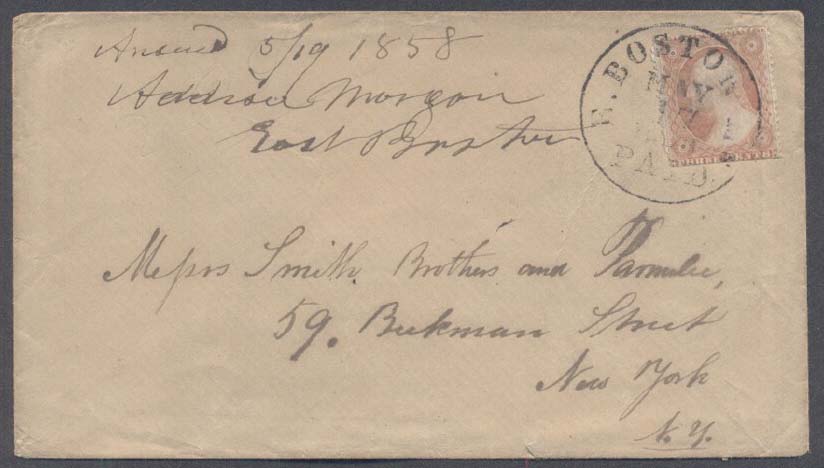 Answd 5/19 1858
Addison Morgan
East Boston
E. BOSTON
MAY
PAID
THREE CENTS
Messrs Smith Brothers and Parmelee,
59. Beekman Street
New York
N.Y.